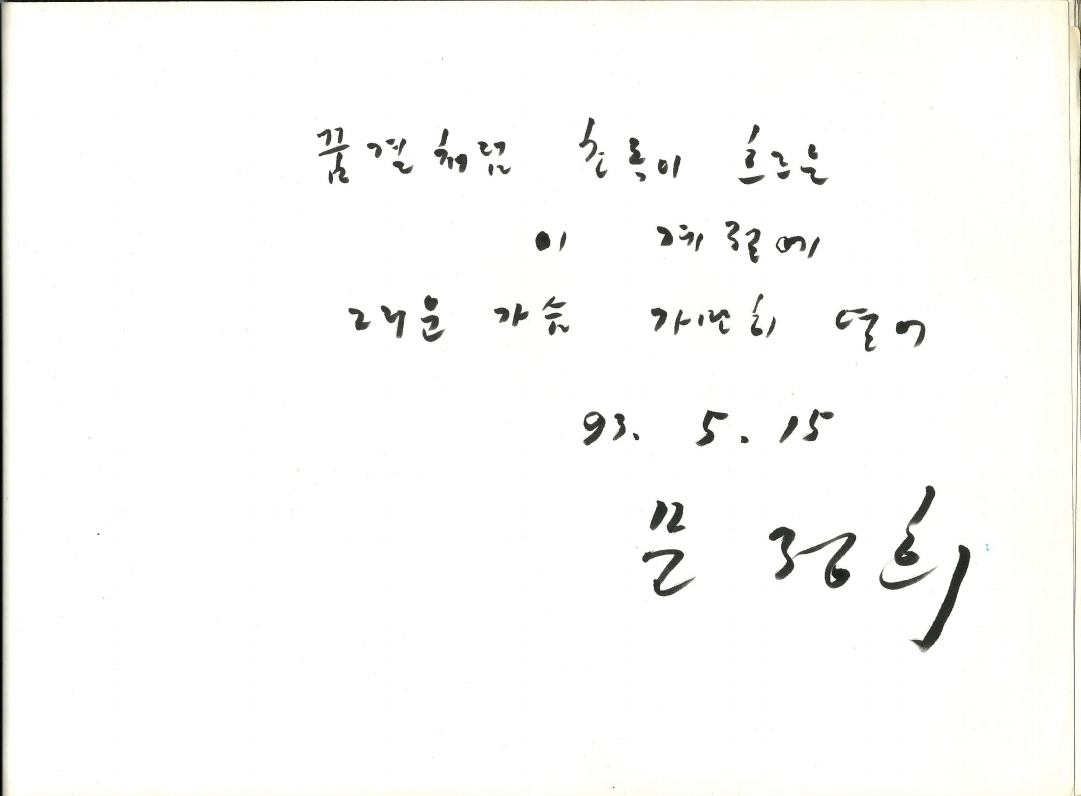 꿈결처럼 초록이 흐르는
이 계절에
그리운 가슴 가만히 열어
93. 5. 15
문 정희